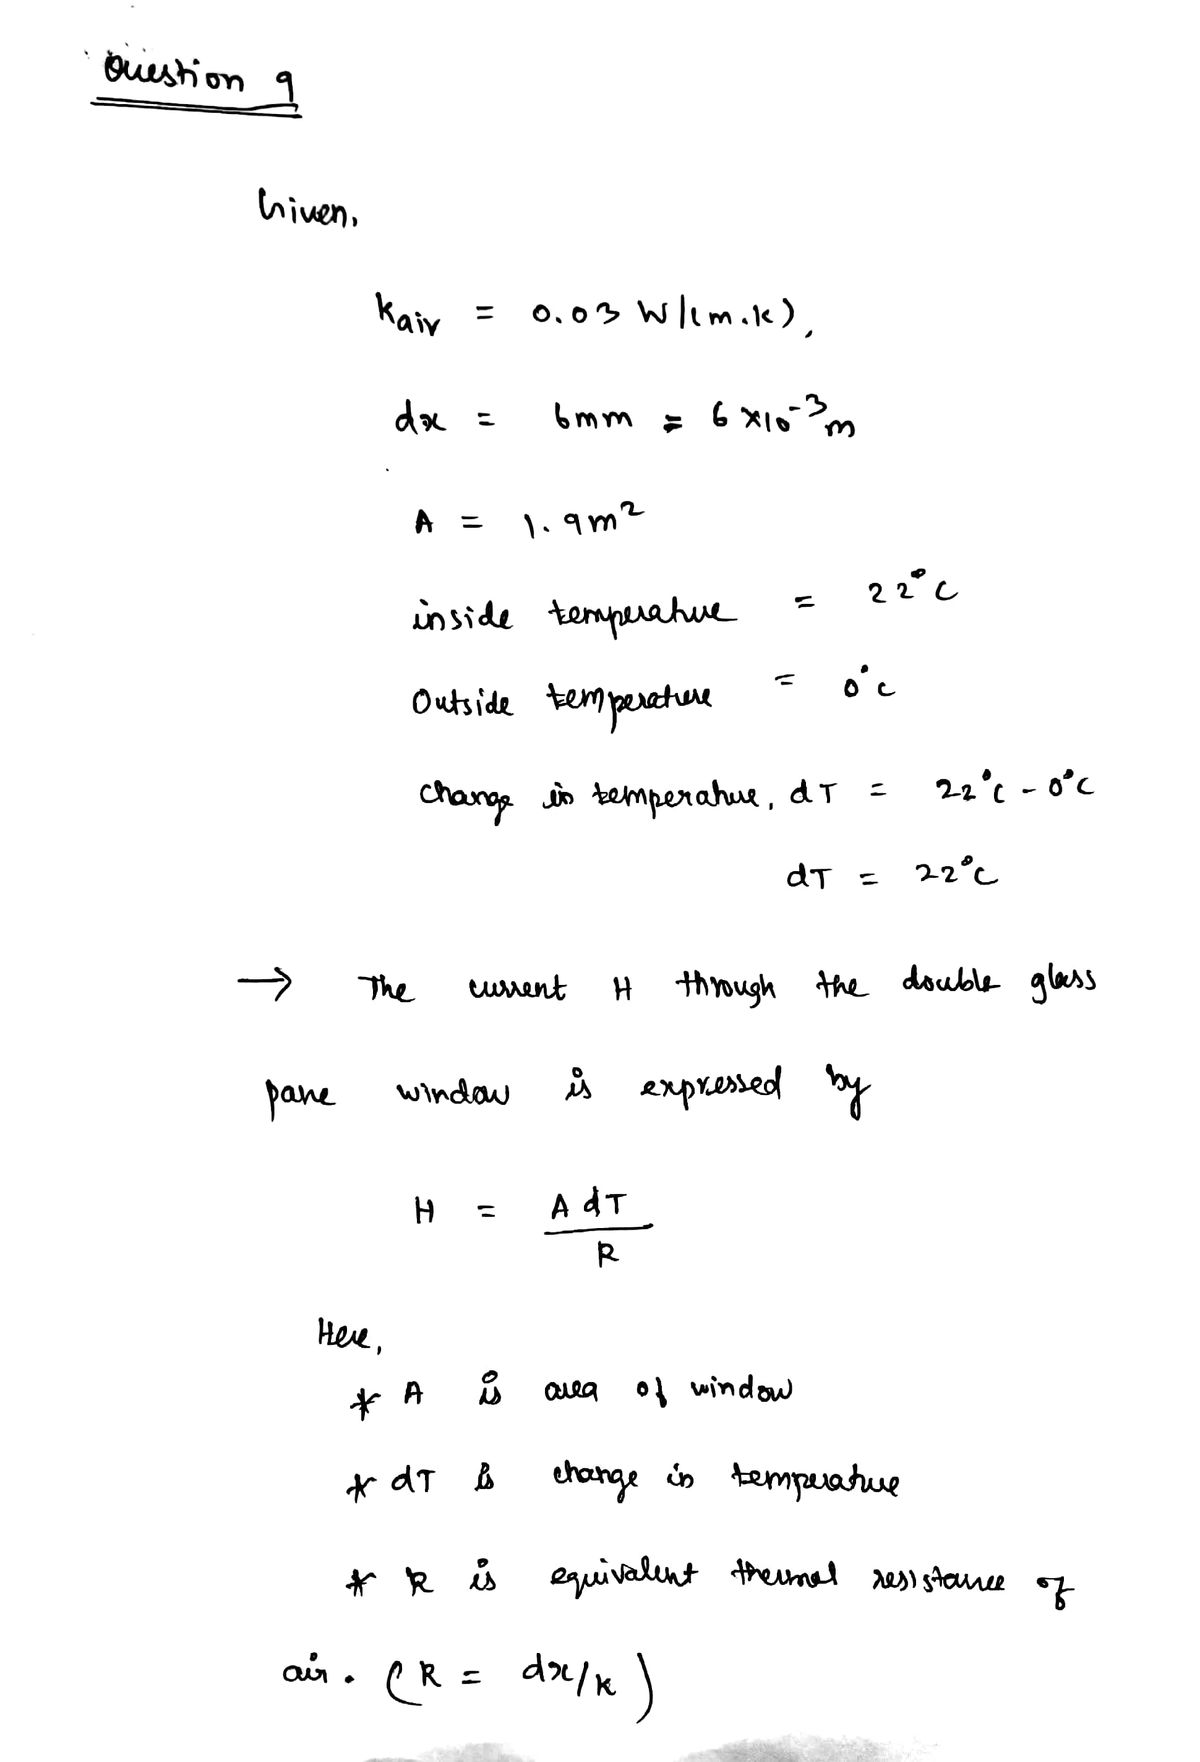 Question 9
Given,
kair = 0.03 W/(m.k),
dx = 6mm = 6 x10-3m
A = 1.9m2
inside temperature = 22°C
Outside temperature = 0°C
change in temperature, dT = 22°C - 0°C
dT = 22°C
→ The current H through the double glass
pane window is expressed by
H = A dT
R
Here,
* A is area of window
* dT is change in temperature
* R is equivalent thermal resistance of
air. (R = dx/k)